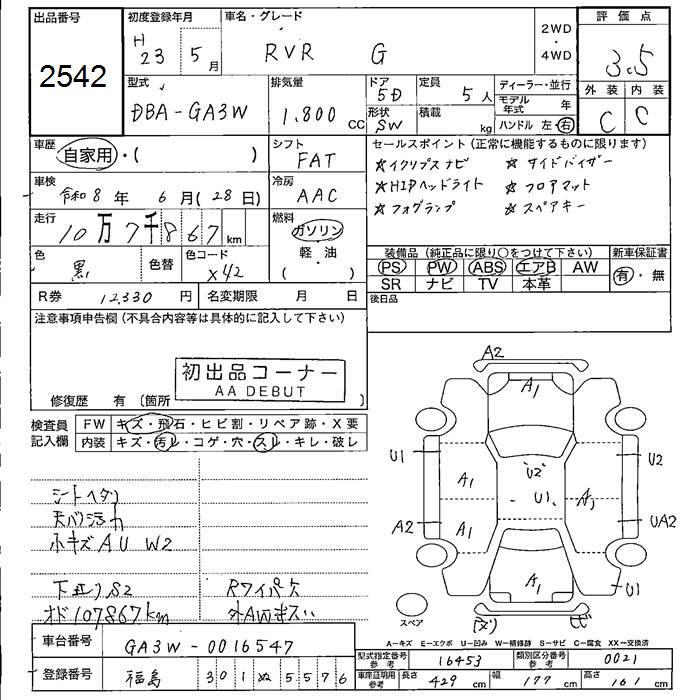 出品番号
2542
初度登録年月
H 23 5月
車名・グレード
RVR G
2WD
・
4WD
評価点
3.5
外装 内装
C C
型式
DBA-GA3W
排気量
1.800 CC
ドア
5D
形状
SW
定員
5人
積載
kg
ディーラー・並行
モデル年式 年
ハンドル 左・右
車歴
自家用・( )
シフト
FAT
セールスポイント (正常に機能するものに限ります)
☆イクリプスナビ ☆サイドバイザー
☆HIDヘッドライト ☆フロアマット
☆フォグランプ ☆スペアキー
車検
令和8年 6月(28日)
冷房
AAC
走行
10万7千867km
燃料
ガソリン
(軽・油)
色
黒
色替
色コード
X42
装備品 (純正品に限り○をつけて下さい)
PS PW ABS エアB AW
SR ナビ TV 本革
新車保証書
有・無
R券 12,330円
名変期限 月 日
後日品
注意事項申告欄 (不具合内容等は具体的に記入して下さい)
初出品コーナー
AA DEBUT
修復歴 有 (箇所 )
検査員記入欄
FW キズ・飛石・ヒビ割・リペア跡・X要
内装 キズ・汚レ・コゲ・穴・スレ・キレ・破レ
シートヘタリ
天バリ汚れ
小キズ A U W2
下廻りS2
オド107867km
Rワイパー欠
A2
A1
U1
U2
A1
U2
U1
A1
A2
A1
UA2
A1
U1
スペア
A-キズ E-エクボ U-凹み W-補修跡 S-サビ C-腐食 XX-交換済
車台番号
GA3W-0016547
登録番号
福島 301 ぬ 5576
型式指定番号 参考 16453
類別区分番号 参考 0021
車庫証明用 参考
長さ 429cm 幅 177cm 高さ 161cm